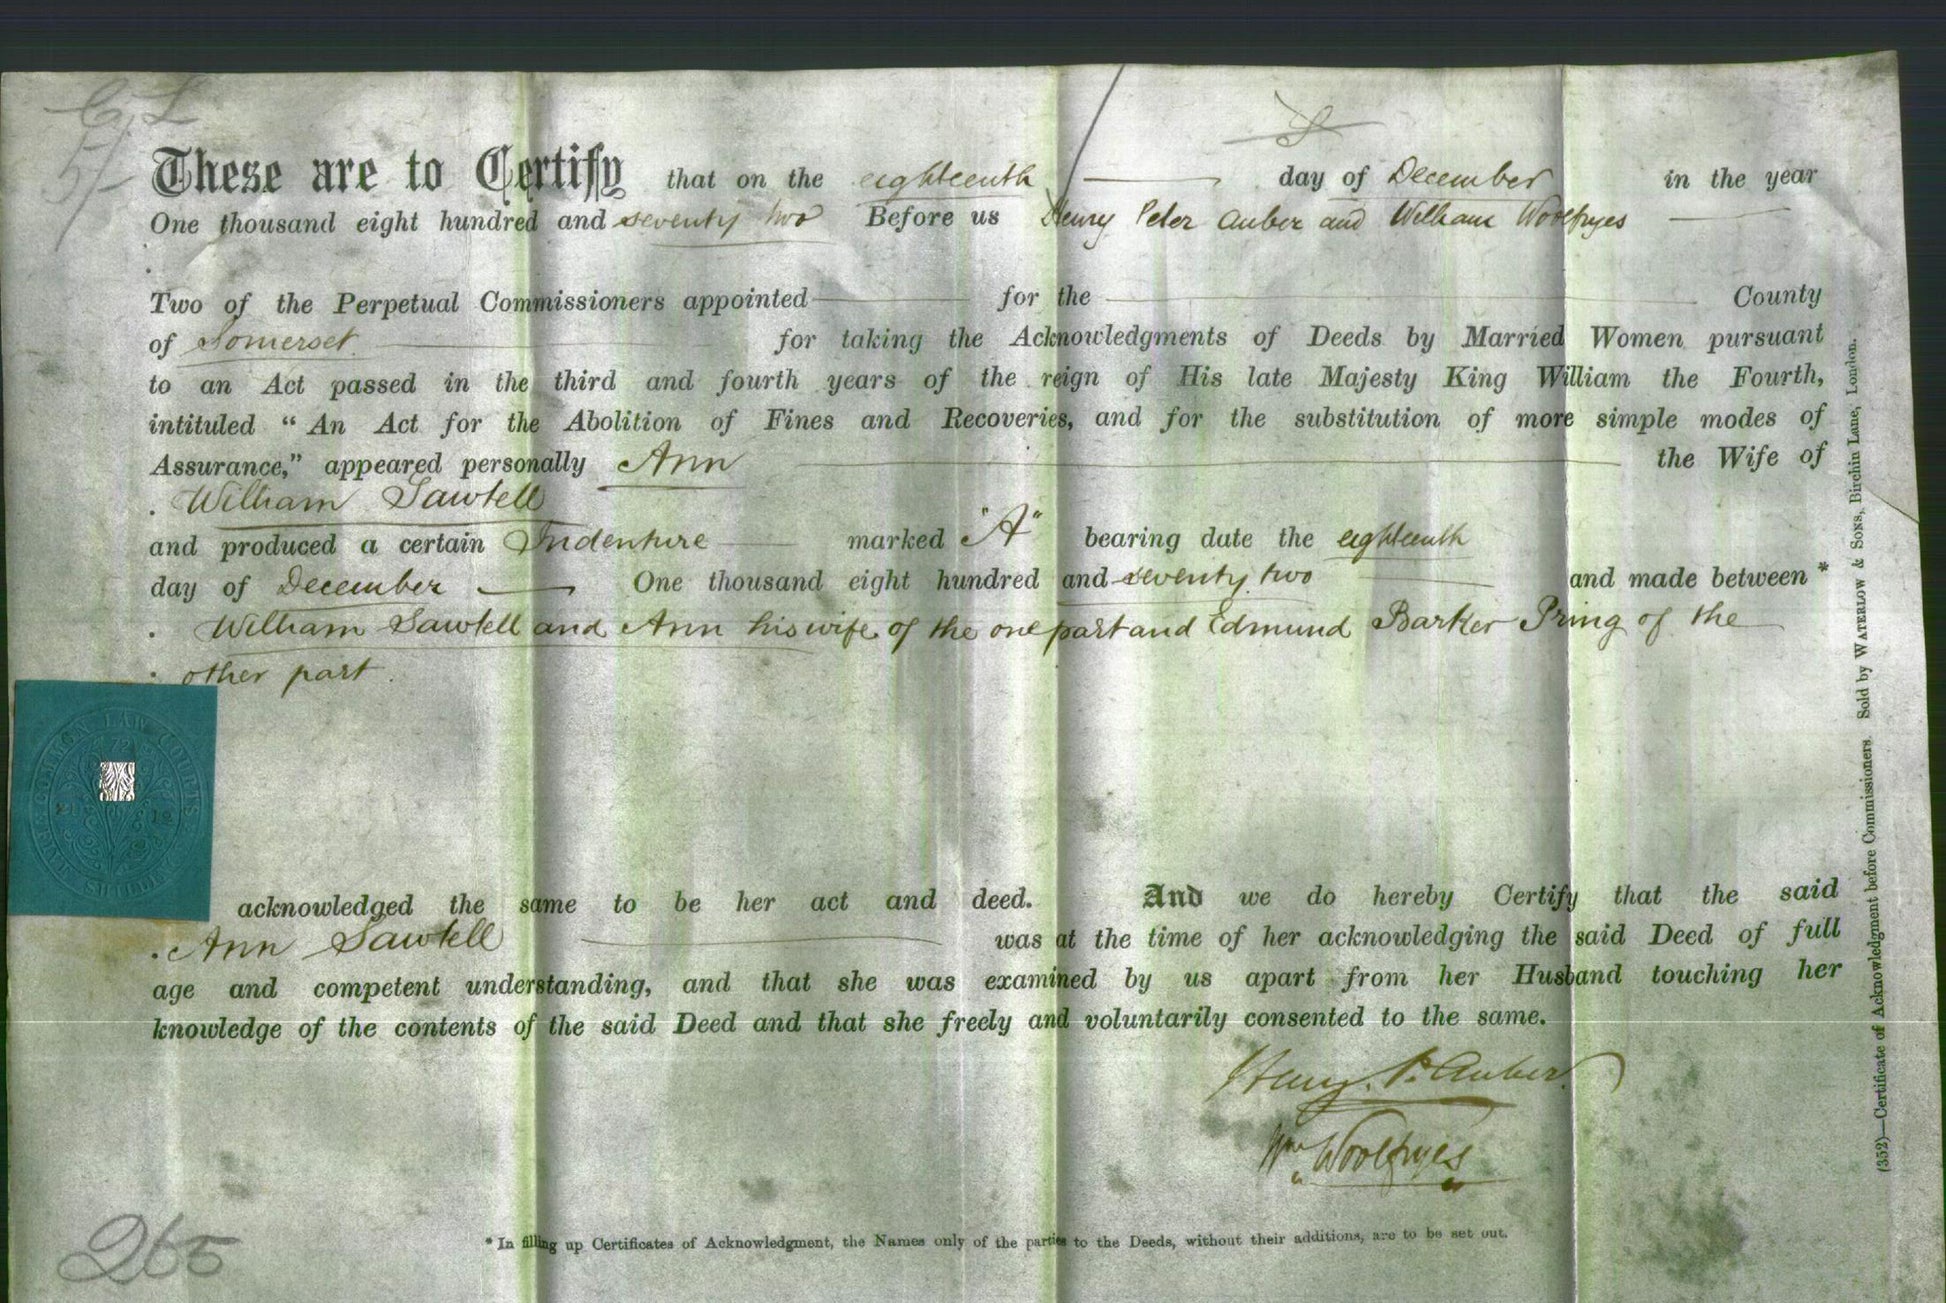 C L
5/-
These are to Certify that on the eighteenth day of December in the year
One thousand eight hundred and seventy two Before us Henry Peter Auber and William Woolfryes
Two of the Perpetual Commissioners appointed for the County
of Somerset. for taking the Acknowledgments of Deeds by Married Women pursuant
to an Act passed in the third and fourth years of the reign of His late Majesty King William the Fourth,
intituled “An Act for the Abolition of Fines and Recoveries, and for the substitution of more simple modes of
Assurance,” appeared personally Ann the Wife of
William Sawtell
and produced a certain Indenture marked "A" bearing date the eighteenth
day of December One thousand eight hundred and seventy two and made between *
William Sawtell and Ann his wife of the one part and Edmund Barker Pring of the
other part.
COMMON LAW COURTS
72
acknowledged the same to be her act and deed. And we do hereby Certify that the said
Ann Sawtell was at the time of her acknowledging the said Deed of full
age and competent understanding, and that she was examined by us apart from her Husband touching her
knowledge of the contents of the said Deed and that she freely and voluntarily consented to the same.
Henry. P. Auber.
Wm Woolfryes
265
* In filling up Certificates of Acknowledgment, the Names only of the parties to the Deeds, without their additions, are to be set out.
(352)—Certificate of Acknowledgment before Commissioners. Sold by WATERLOW & SONS, Birchin Lane, London.